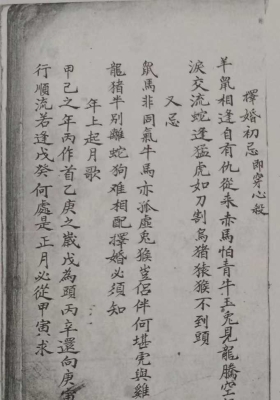 擇婚初忌 即穿心殺
羊鼠相逢自有仇從來赤馬怕青牛玉兔見龍騰空
淚交流蛇逢猛虎如刀割烏猪猿猴不到頭
又忌
鼠馬非同氣牛馬亦孤虛兔猴豈侶伴何堪虎與雞
龍猪牛別離蛇狗难相配擇婚必須知
年上起月歌
甲己之年丙作首乙庚之歲戊為頭丙辛還向庚寅
行順流若逢戊癸何處是正月必從甲寅求